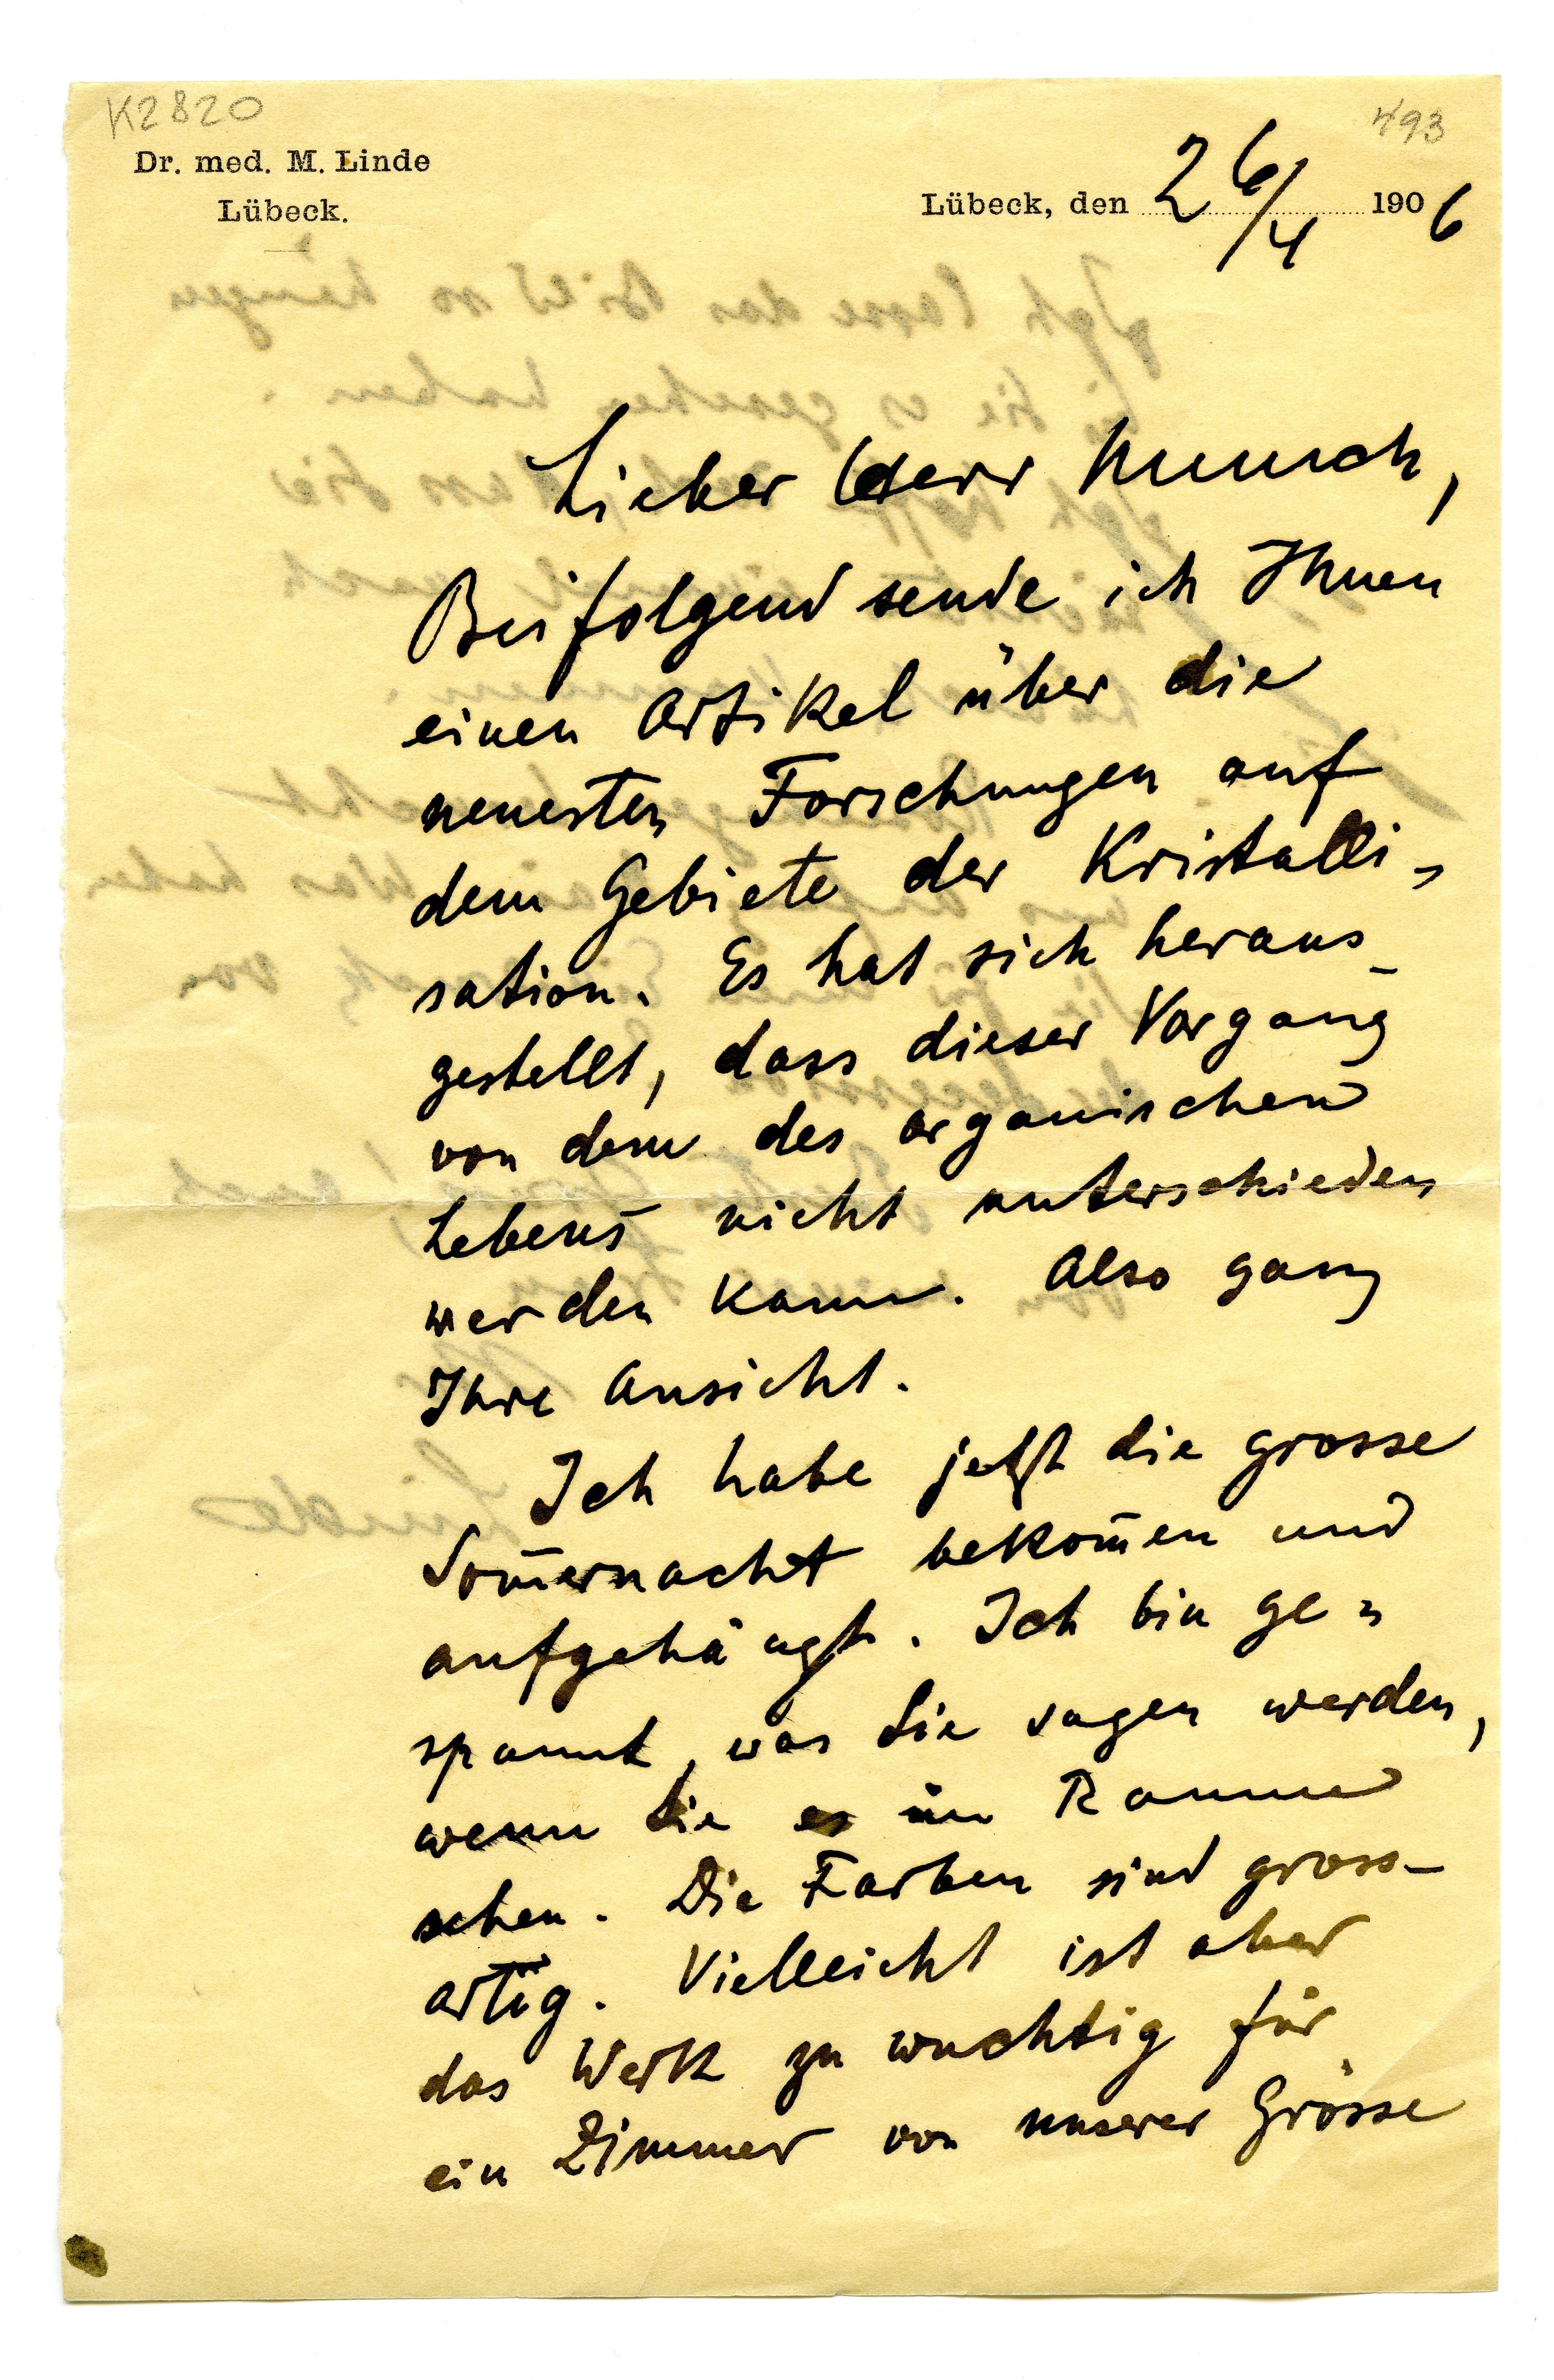 K2820
493
Dr. med. M. Linde
Lübeck.
Lübeck, den 26/4 1906
Lieber Herr Munch,
Beifolgend sende ich Ihnen
einen Artikel über die
neuesten Forschungen auf
dem Gebiete der Kristalli-
sation. Es hat sich heraus-
gestellt, dass dieser Vorgang
von dem des organischen
Lebens nicht unterschieden
werden kann. Also ganz
Ihre Ansicht.
Ich habe jetzt die grosse
Som̄ernacht bekom̄en und
aufgehängt. Ich bin ge-
spannt, was Sie sagen werden,
wenn Sie es im Raume
sehen. Die Farben sind gross-
artig. Vielleicht ist aber
das Werk zu wuchtig für
ein Zimmer von unserer Grösse